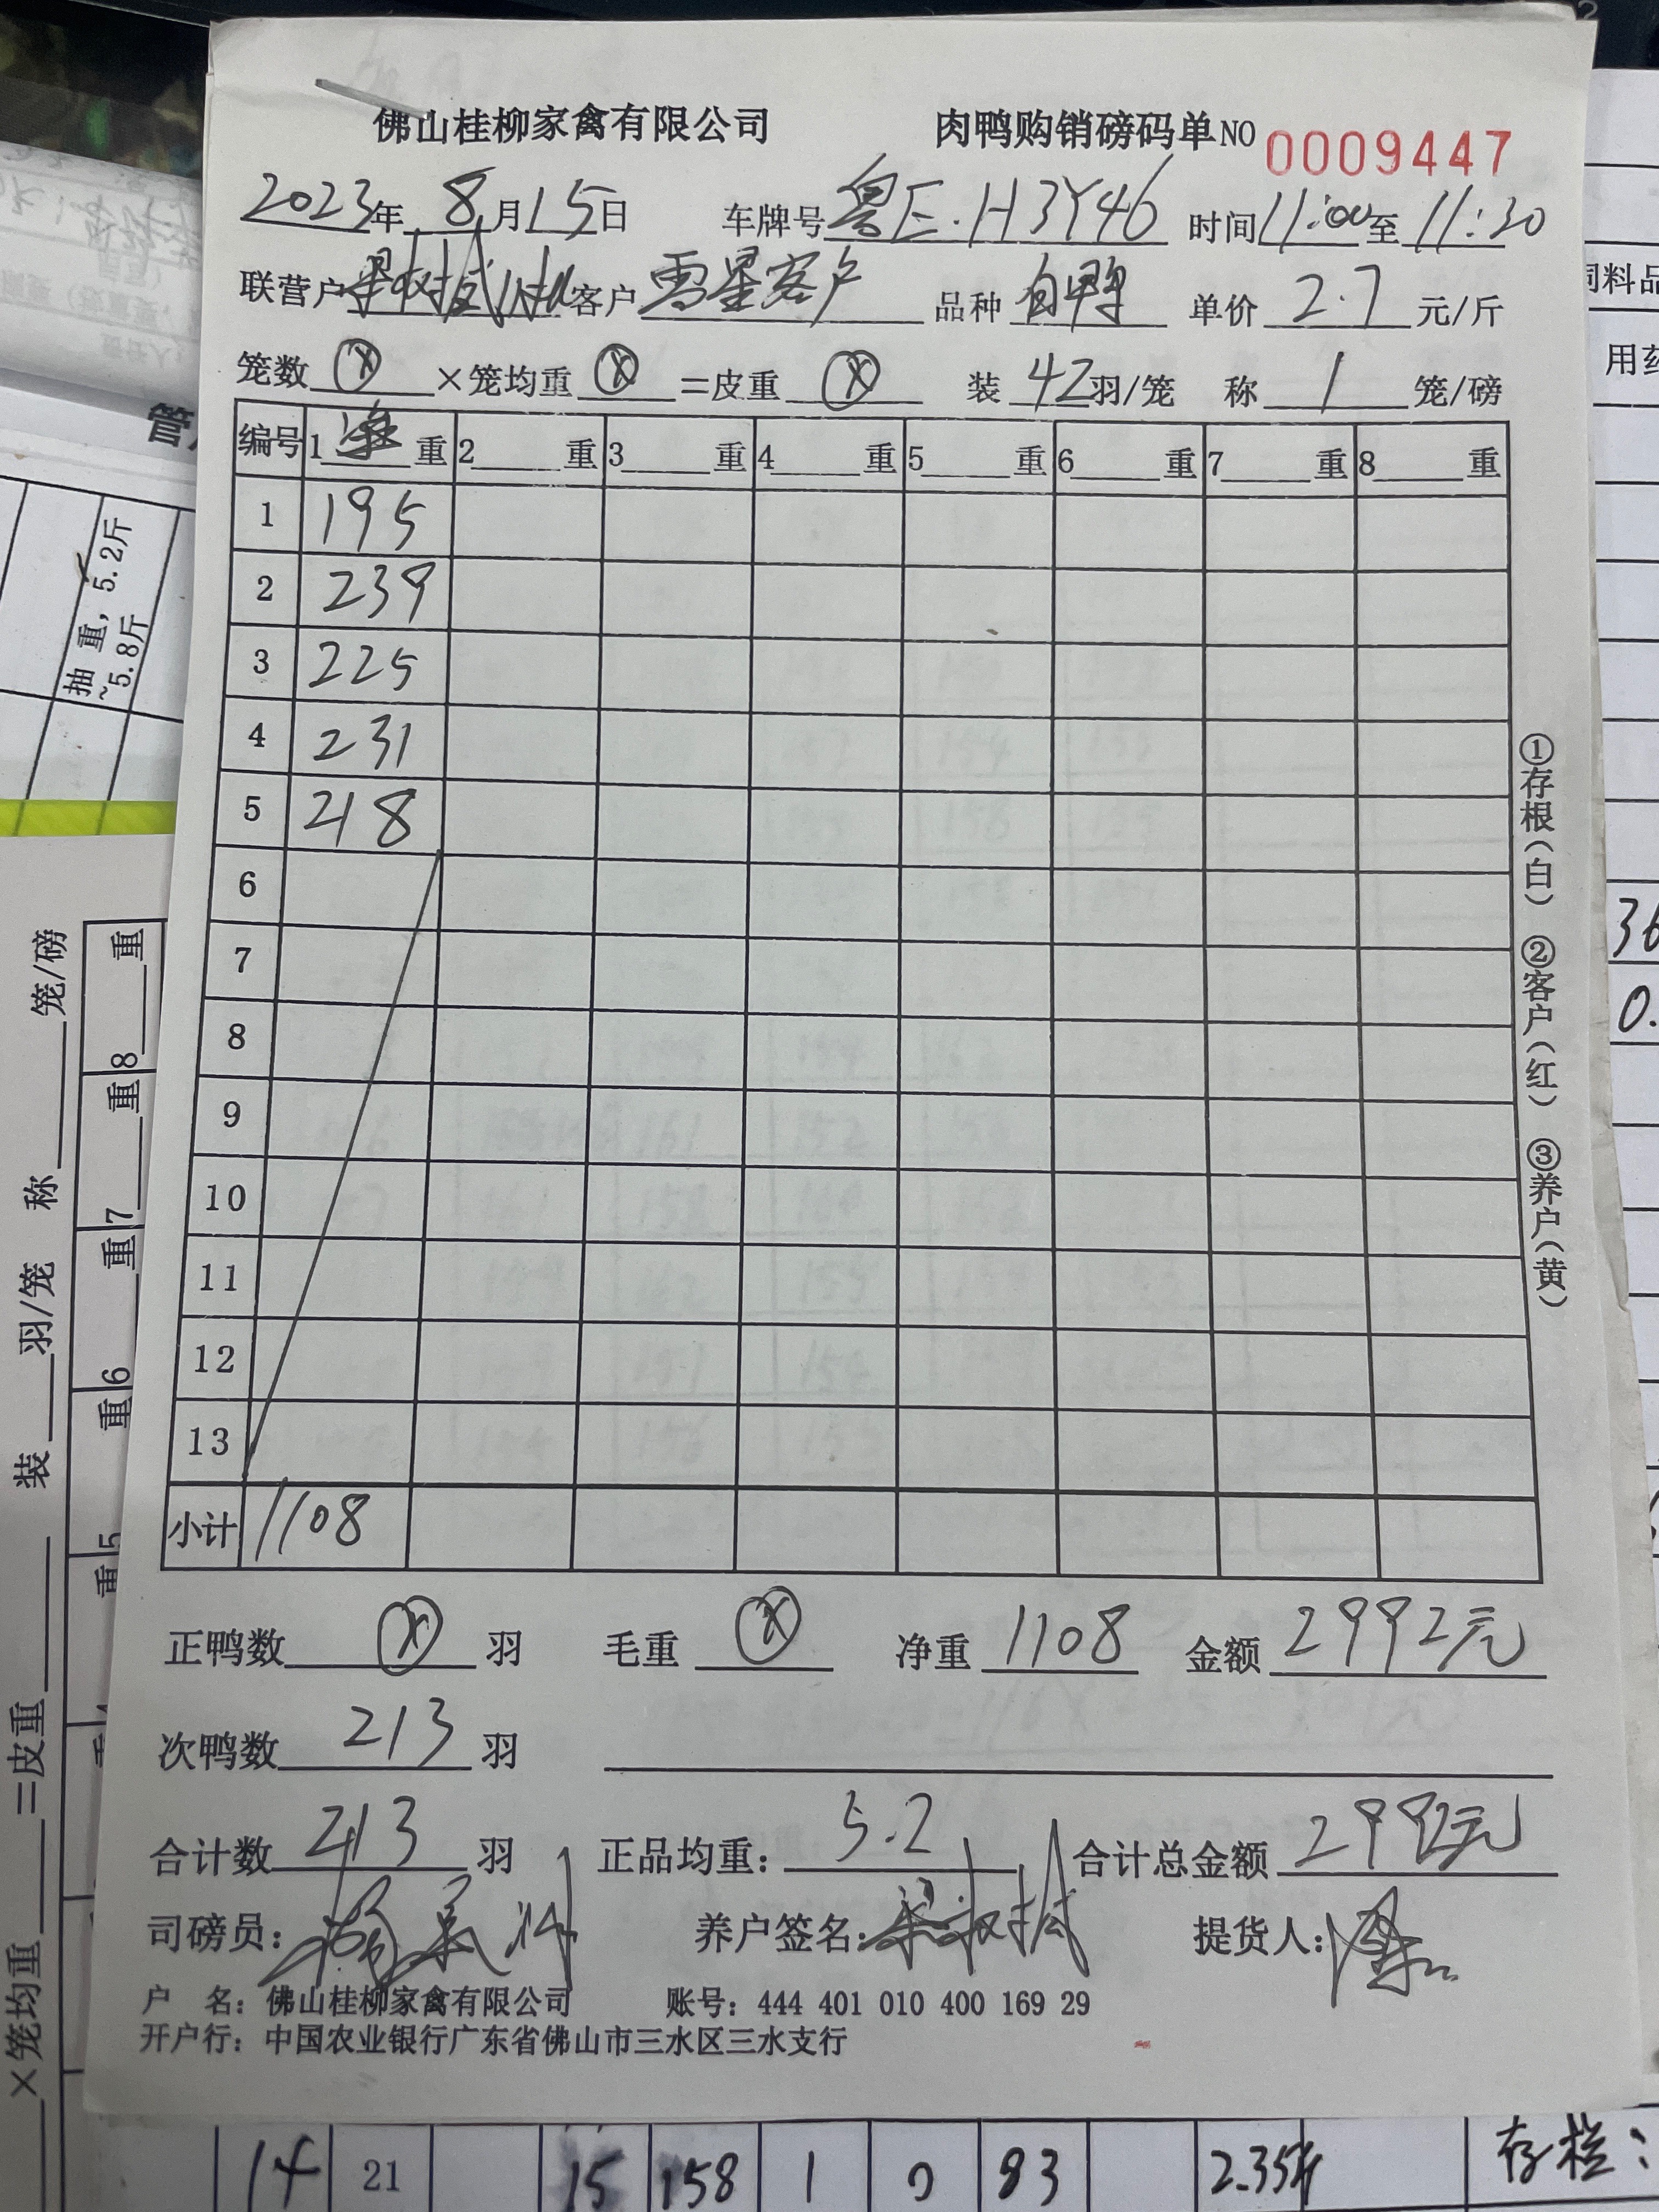 佛山桂柳家禽有限公司 肉鸭购销磅码单NO 0009447
2023年 8月15日 车牌号粤E·H3Y46 时间11:00至11:30
联营户 客户雪星客户 品种白鸭 单价2.7元/斤
笼数ⓧ×笼均重ⓧ=皮重ⓧ 装42羽/笼 称1笼/磅
编号 1净重 2重 3重 4重 5重 6重 7重 8重
1 195
2 239
3 225
4 231
5 218
6
7
8
9
10
11
12
13
小计 1108
正鸭数ⓧ羽 毛重ⓧ 净重1108 金额2992元
次鸭数213羽
合计数213羽 正品均重:5.2 合计总金额2992元
司磅员: 养户签名: 提货人:
户 名:佛山桂柳家禽有限公司 账号:444 401 010 400 169 29
开户行:中国农业银行广东省佛山市三水区三水支行
①存根(白) ②客户(红) ③养户(黄)
抽 重,5.2斤
~5.8斤
×笼均重 =皮重 装 羽/笼 称 笼/磅
重5 重6 重7 重8 重
饲料品
用药
36
0.
14 21 15 158 1 0 83 2.35斤 存栏: